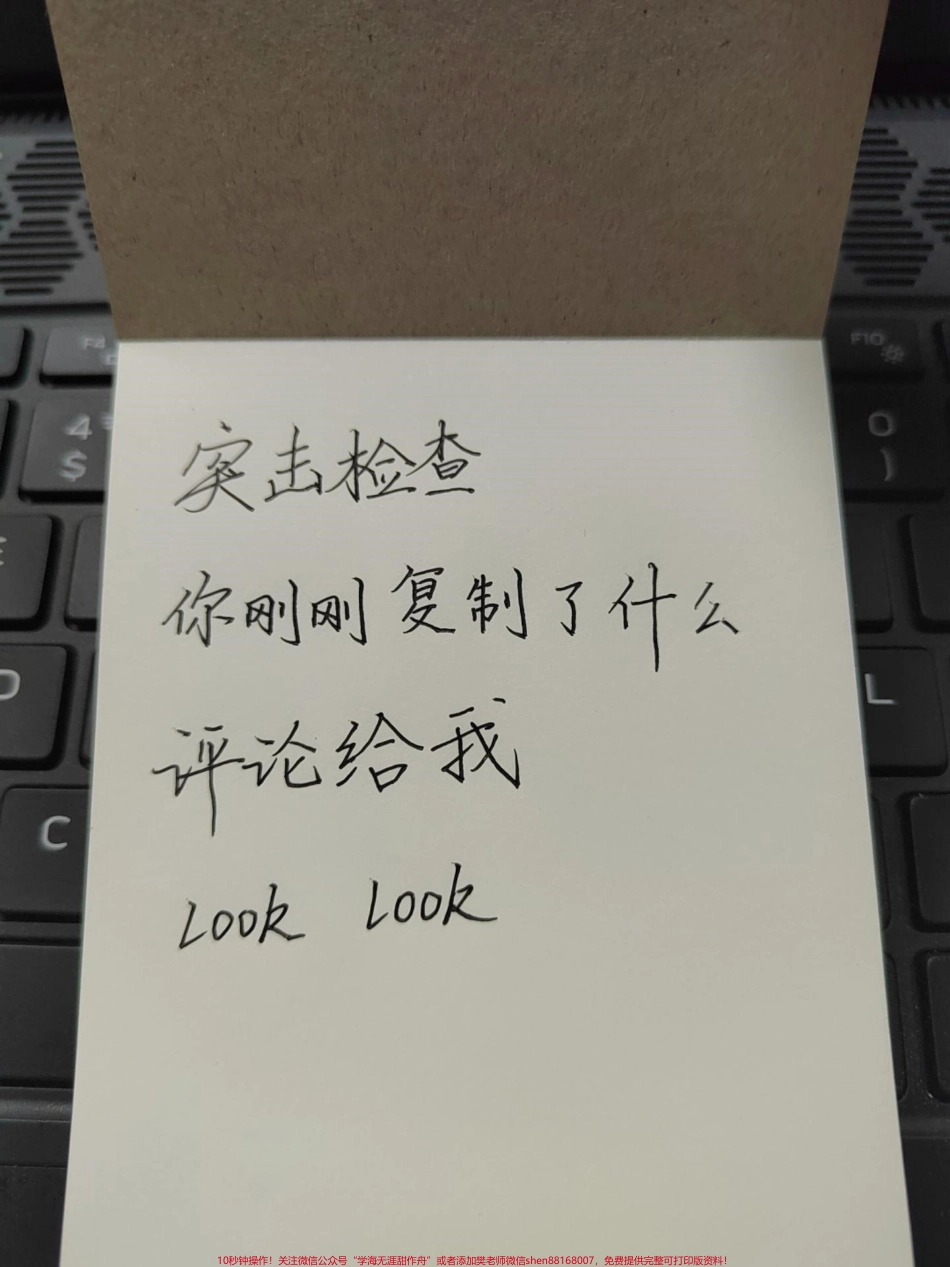 突击检查
你刚刚复制了什么
评论给我
look look
F4
F10
4
$
0
)
E
D
L
C
10秒钟操作！关注微信公众号“学海无涯甜作舟”或者添加樊老师微信shen88168007，免费提供完整可打印版资料！